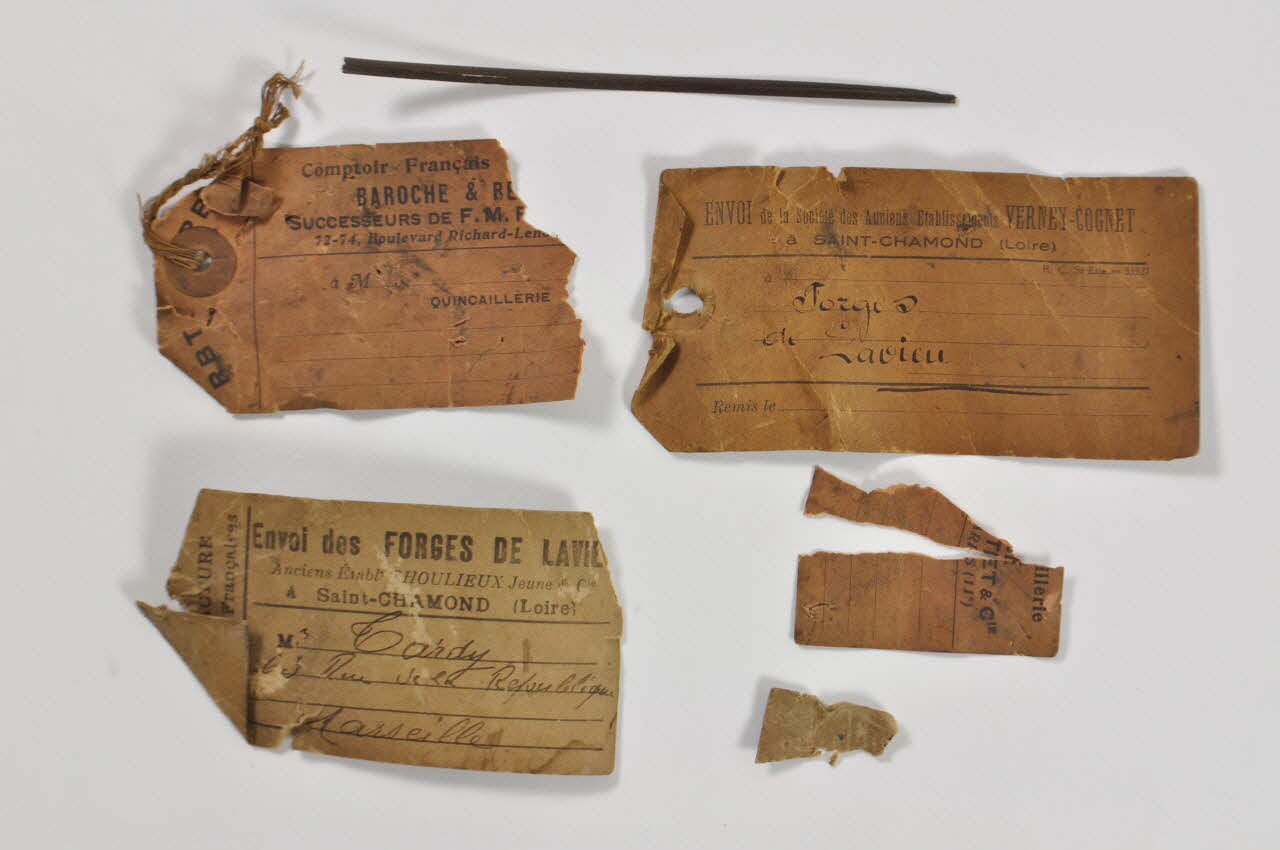 Comptoir Français
BAROCHE & BE
SUCCESSEURS DE F. M. P
72-74, Boulevard Richard-Leno
à M
QUINCAILLERIE
RBT
ENVOI de la Société des Anciens Etablissements VERNEY-COGNET
à SAINT-CHAMOND (Loire)
à
Forges
de
Lavieu
Remis le
Envoi des FORGES DE LAVIE
Anciens Établ CHOULIEUX Jeune & Cie
à Saint-CHAMOND (Loire)
Mrs Tardy
Rue de la République
Marseille
Françaises
illerie
TIET & CIE
RIS (11e)